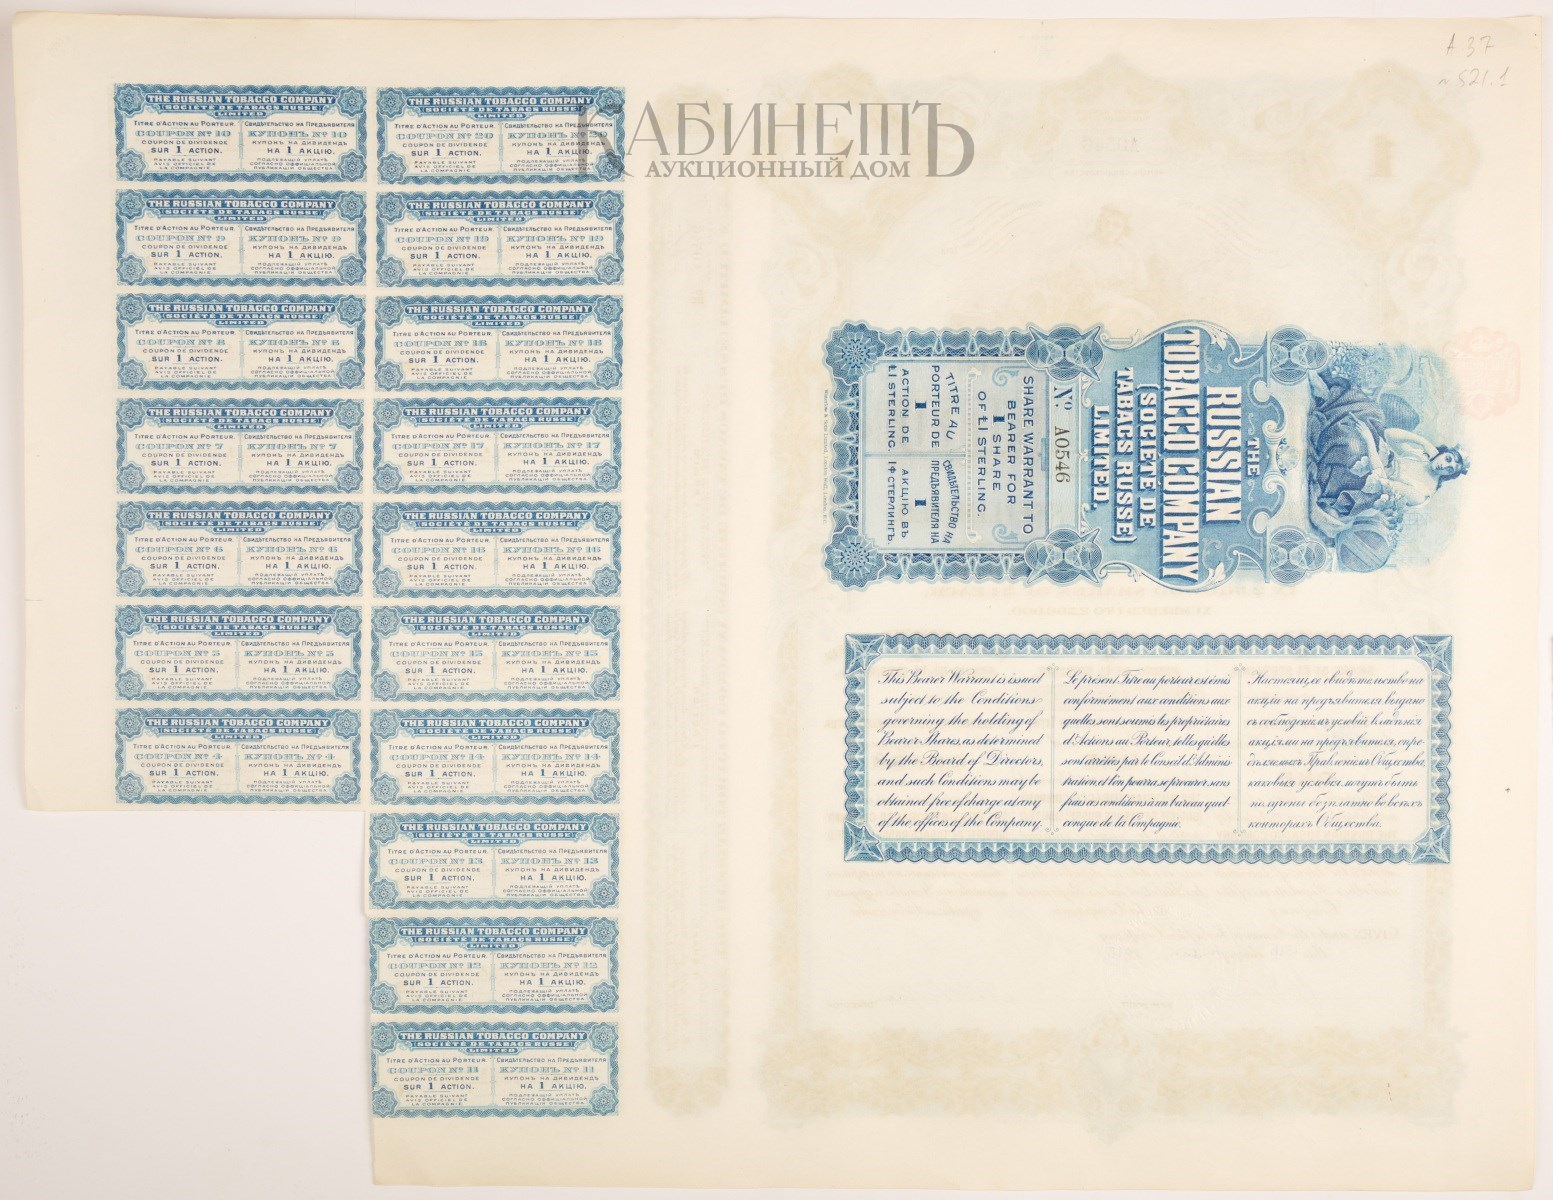 A 37
КАБИНЕТЪ
АУКЦИОННЫЙ ДОМ
THE RUSSIAN TOBACCO COMPANY
(SOCIÉTÉ DE TABACS RUSSE)
LIMITED
TITRE D'ACTION AU PORTEUR. СВИДѢТЕЛЬСТВО НА ПРЕДЪЯВИТЕЛЯ
COUPON No 10 КУПОНЪ No 10
COUPON DE DIVIDENDE КУПОНЪ НА ДИВИДЕНДЪ
SUR 1 ACTION. НА 1 АКЦІЮ.
PAYABLE SUIVANT ПОДЛЕЖАЩІЙ УПЛАТѢ
AVIS OFFICIEL DE СОГЛАСНО ОФФИЦІАЛЬНОЙ
LA COMPAGNIE ПУБЛИКАЦІИ ОБЩЕСТВА
THE RUSSIAN TOBACCO COMPANY
(SOCIÉTÉ DE TABACS RUSSE)
LIMITED
TITRE D'ACTION AU PORTEUR. СВИДѢТЕЛЬСТВО НА ПРЕДЪЯВИТЕЛЯ
COUPON No 20 КУПОНЪ No 20
COUPON DE DIVIDENDE КУПОНЪ НА ДИВИДЕНДЪ
SUR 1 ACTION. НА 1 АКЦІЮ.
PAYABLE SUIVANT ПОДЛЕЖАЩІЙ УПЛАТѢ
AVIS OFFICIEL DE СОГЛАСНО ОФФИЦІАЛЬНОЙ
LA COMPAGNIE ПУБЛИКАЦІИ ОБЩЕСТВА
THE RUSSIAN TOBACCO COMPANY
(SOCIÉTÉ DE TABACS RUSSE)
LIMITED
TITRE D'ACTION AU PORTEUR. СВИДѢТЕЛЬСТВО НА ПРЕДЪЯВИТЕЛЯ
COUPON No 9 КУПОНЪ No 9
COUPON DE DIVIDENDE КУПОНЪ НА ДИВИДЕНДЪ
SUR 1 ACTION. НА 1 АКЦІЮ.
PAYABLE SUIVANT ПОДЛЕЖАЩІЙ УПЛАТѢ
AVIS OFFICIEL DE СОГЛАСНО ОФФИЦІАЛЬНОЙ
LA COMPAGNIE ПУБЛИКАЦІИ ОБЩЕСТВА
THE RUSSIAN TOBACCO COMPANY
(SOCIÉTÉ DE TABACS RUSSE)
LIMITED
TITRE D'ACTION AU PORTEUR. СВИДѢТЕЛЬСТВО НА ПРЕДЪЯВИТЕЛЯ
COUPON No 19 КУПОНЪ No 19
COUPON DE DIVIDENDE КУПОНЪ НА ДИВИДЕНДЪ
SUR 1 ACTION. НА 1 АКЦІЮ.
PAYABLE SUIVANT ПОДЛЕЖАЩІЙ УПЛАТѢ
AVIS OFFICIEL DE СОГЛАСНО ОФФИЦІАЛЬНОЙ
LA COMPAGNIE ПУБЛИКАЦІИ ОБЩЕСТВА
THE RUSSIAN TOBACCO COMPANY
(SOCIÉTÉ DE TABACS RUSSE)
LIMITED
TITRE D'ACTION AU PORTEUR. СВИДѢТЕЛЬСТВО НА ПРЕДЪЯВИТЕЛЯ
COUPON No 8 КУПОНЪ No 8
COUPON DE DIVIDENDE КУПОНЪ НА ДИВИДЕНДЪ
SUR 1 ACTION. НА 1 АКЦІЮ.
PAYABLE SUIVANT ПОДЛЕЖАЩІЙ УПЛАТѢ
AVIS OFFICIEL DE СОГЛАСНО ОФФИЦІАЛЬНОЙ
LA COMPAGNIE ПУБЛИКАЦІИ ОБЩЕСТВА
THE RUSSIAN TOBACCO COMPANY
(SOCIÉTÉ DE TABACS RUSSE)
LIMITED
TITRE D'ACTION AU PORTEUR. СВИДѢТЕЛЬСТВО НА ПРЕДЪЯВИТЕЛЯ
COUPON No 18 КУПОНЪ No 18
COUPON DE DIVIDENDE КУПОНЪ НА ДИВИДЕНДЪ
SUR 1 ACTION. НА 1 АКЦІЮ.
PAYABLE SUIVANT ПОДЛЕЖАЩІЙ УПЛАТѢ
AVIS OFFICIEL DE СОГЛАСНО ОФФИЦІАЛЬНОЙ
LA COMPAGNIE ПУБЛИКАЦІИ ОБЩЕСТВА
THE RUSSIAN TOBACCO COMPANY
(SOCIÉTÉ DE TABACS RUSSE)
LIMITED
TITRE D'ACTION AU PORTEUR. СВИДѢТЕЛЬСТВО НА ПРЕДЪЯВИТЕЛЯ
COUPON No 7 КУПОНЪ No 7
COUPON DE DIVIDENDE КУПОНЪ НА ДИВИДЕНДЪ
SUR 1 ACTION. НА 1 АКЦІЮ.
PAYABLE SUIVANT ПОДЛЕЖАЩІЙ УПЛАТѢ
AVIS OFFICIEL DE СОГЛАСНО ОФФИЦІАЛЬНОЙ
LA COMPAGNIE ПУБЛИКАЦІИ ОБЩЕСТВА
THE RUSSIAN TOBACCO COMPANY
(SOCIÉTÉ DE TABACS RUSSE)
LIMITED
TITRE D'ACTION AU PORTEUR. СВИДѢТЕЛЬСТВО НА ПРЕДЪЯВИТЕЛЯ
COUPON No 17 КУПОНЪ No 17
COUPON DE DIVIDENDE КУПОНЪ НА ДИВИДЕНДЪ
SUR 1 ACTION. НА 1 АКЦІЮ.
PAYABLE SUIVANT ПОДЛЕЖАЩІЙ УПЛАТѢ
AVIS OFFICIEL DE СОГЛАСНО ОФФИЦІАЛЬНОЙ
LA COMPAGNIE ПУБЛИКАЦІИ ОБЩЕСТВА
THE RUSSIAN TOBACCO COMPANY
(SOCIÉTÉ DE TABACS RUSSE)
LIMITED
TITRE D'ACTION AU PORTEUR. СВИДѢТЕЛЬСТВО НА ПРЕДЪЯВИТЕЛЯ
COUPON No 6 КУПОНЪ No 6
COUPON DE DIVIDENDE КУПОНЪ НА ДИВИДЕНДЪ
SUR 1 ACTION. НА 1 АКЦІЮ.
PAYABLE SUIVANT ПОДЛЕЖАЩІЙ УПЛАТѢ
AVIS OFFICIEL DE СОГЛАСНО ОФФИЦІАЛЬНОЙ
LA COMPAGNIE ПУБЛИКАЦІИ ОБЩЕСТВА
THE RUSSIAN TOBACCO COMPANY
(SOCIÉTÉ DE TABACS RUSSE)
LIMITED
TITRE D'ACTION AU PORTEUR. СВИДѢТЕЛЬСТВО НА ПРЕДЪЯВИТЕЛЯ
COUPON No 16 КУПОНЪ No 16
COUPON DE DIVIDENDE КУПОНЪ НА ДИВИДЕНДЪ
SUR 1 ACTION. НА 1 АКЦІЮ.
PAYABLE SUIVANT ПОДЛЕЖАЩІЙ УПЛАТѢ
AVIS OFFICIEL DE СОГЛАСНО ОФФИЦІАЛЬНОЙ
LA COMPAGNIE ПУБЛИКАЦІИ ОБЩЕСТВА
THE RUSSIAN TOBACCO COMPANY
(SOCIÉTÉ DE TABACS RUSSE)
LIMITED
TITRE D'ACTION AU PORTEUR. СВИДѢТЕЛЬСТВО НА ПРЕДЪЯВИТЕЛЯ
COUPON No 5 КУПОНЪ No 5
COUPON DE DIVIDENDE КУПОНЪ НА ДИВИДЕНДЪ
SUR 1 ACTION. НА 1 АКЦІЮ.
PAYABLE SUIVANT ПОДЛЕЖАЩІЙ УПЛАТѢ
AVIS OFFICIEL DE СОГЛАСНО ОФФИЦІАЛЬНОЙ
LA COMPAGNIE ПУБЛИКАЦІИ ОБЩЕСТВА
THE RUSSIAN TOBACCO COMPANY
(SOCIÉTÉ DE TABACS RUSSE)
LIMITED
TITRE D'ACTION AU PORTEUR. СВИДѢТЕЛЬСТВО НА ПРЕДЪЯВИТЕЛЯ
COUPON No 15 КУПОНЪ No 15
COUPON DE DIVIDENDE КУПОНЪ НА ДИВИДЕНДЪ
SUR 1 ACTION. НА 1 АКЦІЮ.
PAYABLE SUIVANT ПОДЛЕЖАЩІЙ УПЛАТѢ
AVIS OFFICIEL DE СОГЛАСНО ОФФИЦІАЛЬНОЙ
LA COMPAGNIE ПУБЛИКАЦІИ ОБЩЕСТВА
THE RUSSIAN TOBACCO COMPANY
(SOCIÉTÉ DE TABACS RUSSE)
LIMITED
TITRE D'ACTION AU PORTEUR. СВИДѢТЕЛЬСТВО НА ПРЕДЪЯВИТЕЛЯ
COUPON No 4 КУПОНЪ No 4
COUPON DE DIVIDENDE КУПОНЪ НА ДИВИДЕНДЪ
SUR 1 ACTION. НА 1 АКЦІЮ.
PAYABLE SUIVANT ПОДЛЕЖАЩІЙ УПЛАТѢ
AVIS OFFICIEL DE СОГЛАСНО ОФФИЦІАЛЬНОЙ
LA COMPAGNIE ПУБЛИКАЦІИ ОБЩЕСТВА
THE RUSSIAN TOBACCO COMPANY
(SOCIÉTÉ DE TABACS RUSSE)
LIMITED
TITRE D'ACTION AU PORTEUR. СВИДѢТЕЛЬСТВО НА ПРЕДЪЯВИТЕЛЯ
COUPON No 14 КУПОНЪ No 14
COUPON DE DIVIDENDE КУПОНЪ НА ДИВИДЕНДЪ
SUR 1 ACTION. НА 1 АКЦІЮ.
PAYABLE SUIVANT ПОДЛЕЖАЩІЙ УПЛАТѢ
AVIS OFFICIEL DE СОГЛАСНО ОФФИЦІАЛЬНОЙ
LA COMPAGNIE ПУБЛИКАЦІИ ОБЩЕСТВА
THE RUSSIAN TOBACCO COMPANY
(SOCIÉTÉ DE TABACS RUSSE)
LIMITED
TITRE D'ACTION AU PORTEUR. СВИДѢТЕЛЬСТВО НА ПРЕДЪЯВИТЕЛЯ
COUPON No 13 КУПОНЪ No 13
COUPON DE DIVIDENDE КУПОНЪ НА ДИВИДЕНДЪ
SUR 1 ACTION. НА 1 АКЦІЮ.
PAYABLE SUIVANT ПОДЛЕЖАЩІЙ УПЛАТѢ
AVIS OFFICIEL DE СОГЛАСНО ОФФИЦІАЛЬНОЙ
LA COMPAGNIE ПУБЛИКАЦІИ ОБЩЕСТВА
THE RUSSIAN TOBACCO COMPANY
(SOCIÉTÉ DE TABACS RUSSE)
LIMITED
TITRE D'ACTION AU PORTEUR. СВИДѢТЕЛЬСТВО НА ПРЕДЪЯВИТЕЛЯ
COUPON No 12 КУПОНЪ No 12
COUPON DE DIVIDENDE КУПОНЪ НА ДИВИДЕНДЪ
SUR 1 ACTION. НА 1 АКЦІЮ.
PAYABLE SUIVANT ПОДЛЕЖАЩІЙ УПЛАТѢ
AVIS OFFICIEL DE СОГЛАСНО ОФФИЦІАЛЬНОЙ
LA COMPAGNIE ПУБЛИКАЦІИ ОБЩЕСТВА
THE RUSSIAN TOBACCO COMPANY
(SOCIÉTÉ DE TABACS RUSSE)
LIMITED
TITRE D'ACTION AU PORTEUR. СВИДѢТЕЛЬСТВО НА ПРЕДЪЯВИТЕЛЯ
COUPON No 11 КУПОНЪ No 11
COUPON DE DIVIDENDE КУПОНЪ НА ДИВИДЕНДЪ
SUR 1 ACTION. НА 1 АКЦІЮ.
PAYABLE SUIVANT ПОДЛЕЖАЩІЙ УПЛАТѢ
AVIS OFFICIEL DE СОГЛАСНО ОФФИЦІАЛЬНОЙ
LA COMPAGNIE ПУБЛИКАЦІИ ОБЩЕСТВА
THE
RUSSIAN
TOBACCO COMPANY
(SOCIÉTÉ DE
TABACS RUSSE)
LIMITED.
No. A0546
SHARE WARRANT TO
BEARER FOR
1 SHARE
OF £1 STERLING.
TITRE AU
PORTEUR DE
1
ACTION DE
£1 STERLING.
СВИДѢТЕЛЬСТВО НА
ПРЕДЪЯВИТЕЛЯ НА
1
АКЦІЮ ВЪ
1 Ф. СТЕРЛИНГЪ.
This Bearer Warrant is issued
subject to the Conditions
governing the holding of
Bearer Shares, as determined
by the Board of Directors,
and such Conditions may be
obtained free of charge at any
of the offices of the Company.
Le présent Titre au porteur est émis
conformément aux conditions aux
quelles sont soumis les propriétaires
d'Actions au Porteur, telles qu'elles
sont arrêtées par le Conseil d'Adminis
tration et l'on pourra se procurer sans
frais ces conditions à un bureau quel-
conque de la Compagnie.
Настоящее свидѣтельство на
акціи на предъявителя выдано
съ соблюденіемъ условій владѣнія
акціями на предъявителя, опре-
дѣляемыхъ Правленіемъ Общества,
каковыя условія могутъ быть
получены безплатно во всѣхъ
конторахъ Общества.